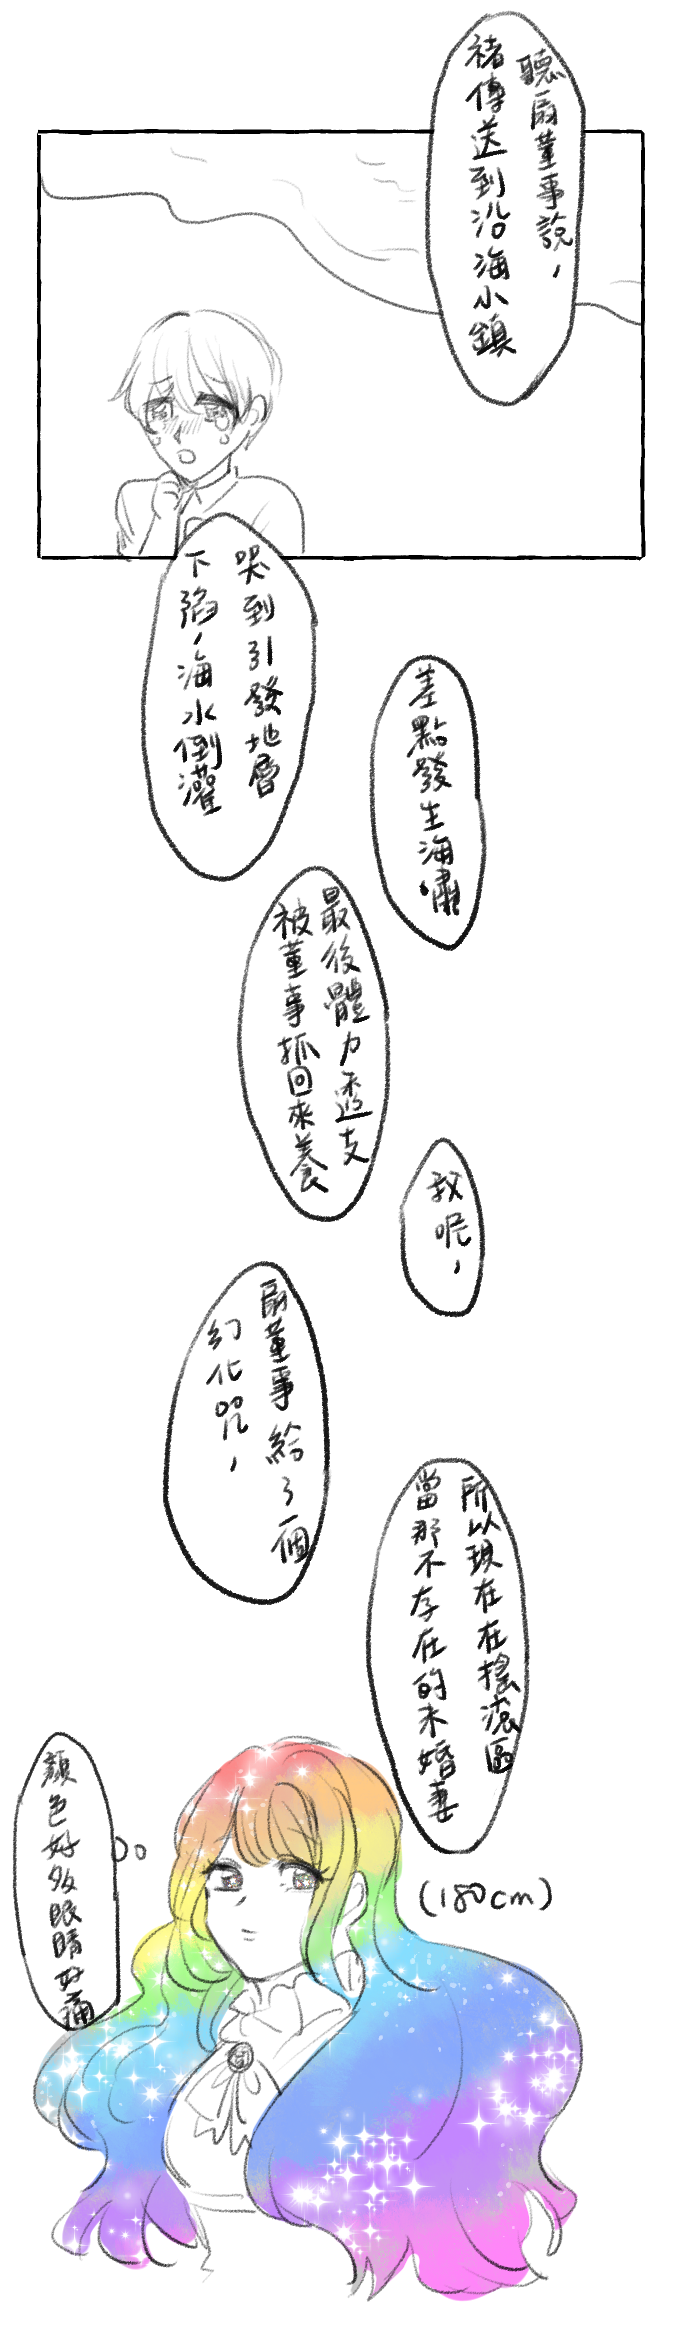 聽扇董事說，
褚傳送到沿海小鎮
哭到引發地層
下陷，海水倒灌
差點發生海嘯
最後體力透支
被董事抓回來養
我呢，
扇董事給了一個
幻化咒，
所以現在在搖滾區
當那不存在的未婚妻
(180cm)
顏色好多眼睛好痛